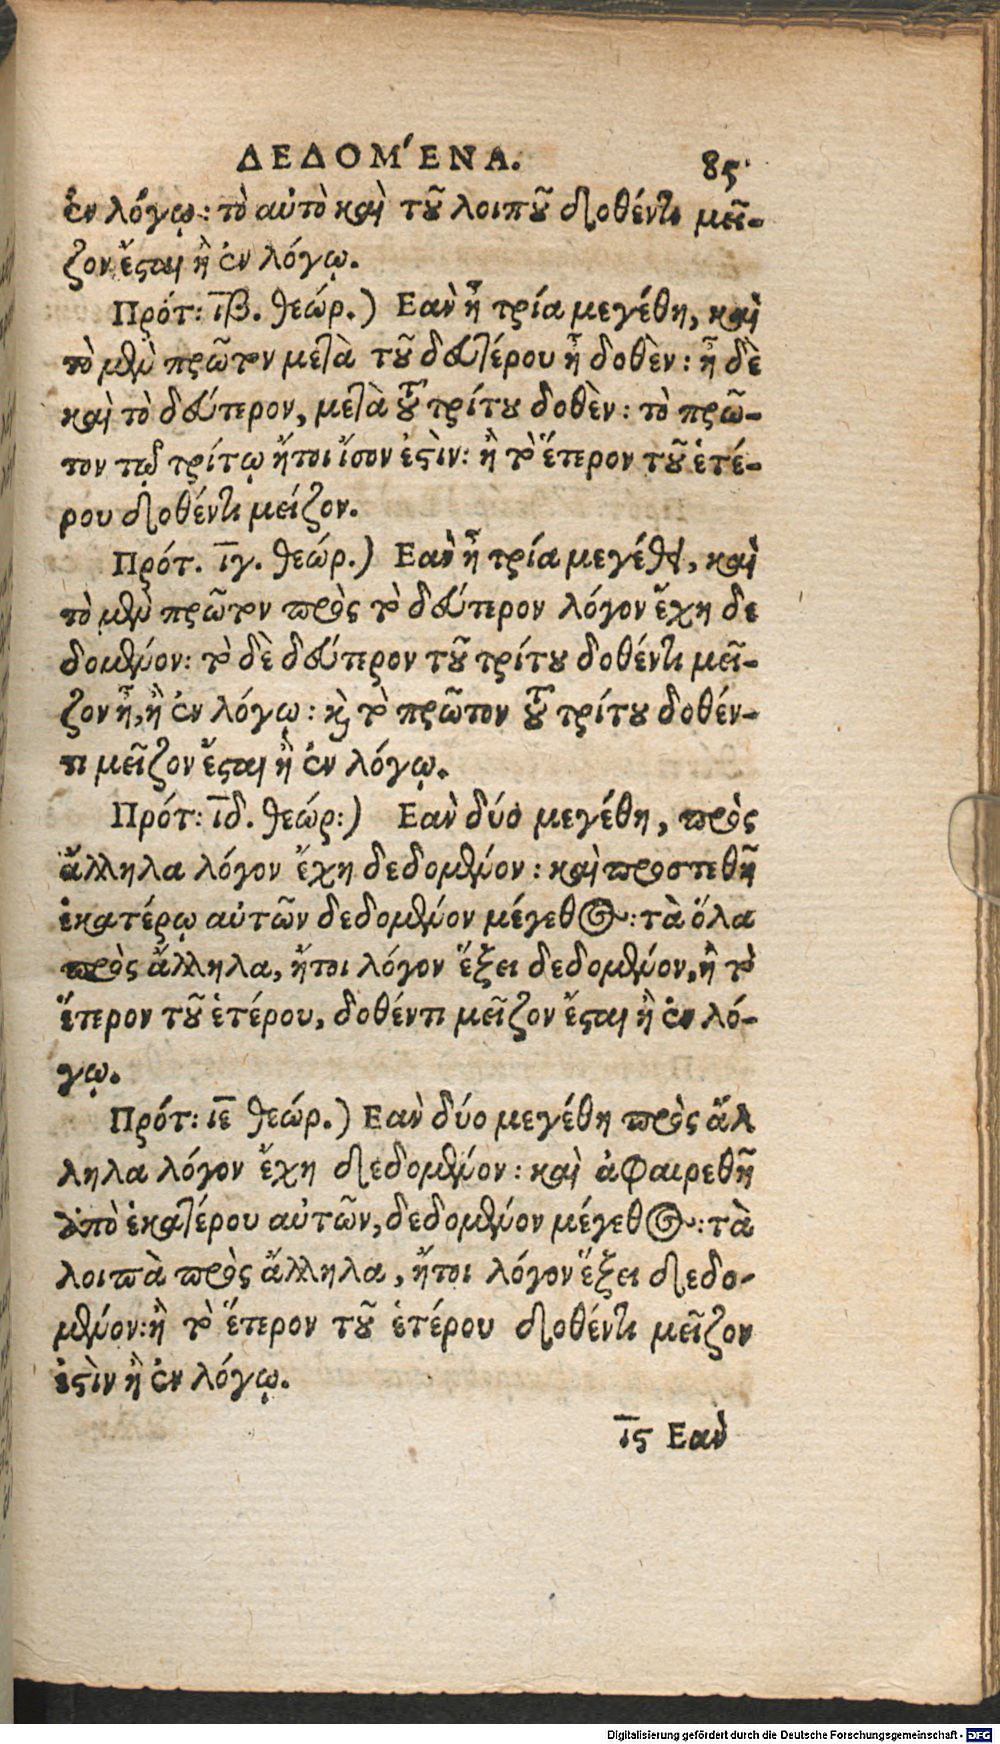 ΔΕΔΟΜΈΝΑ. 85
ἐν λόγῳ: τὸ αὐτὸ καὶ τοῦ λοιποῦ δοθέντι μεῖ-
ζον ἔσται ἢ ἐν λόγῳ.
Πρότ: ι̅β. θεώρ.) Εαν ᾖ τρία μεγέθη, καὶ
τὸ μὲν πρῶτον μετὰ τοῦ δευτέρου ᾖ δοθὲν: ᾖ δὲ
καὶ τὸ δεύτερον, μετὰ τοῦ τρίτου δοθὲν: τὸ πρῶ-
τον τῷ τρίτῳ ἤτοι ἴσον ἐστὶν: ἢ τὸ ἕτερον τοῦ ἑτέ-
ρου δοθέντι μείζον.
Πρότ. ι̅γ. θεώρ.) Εαν ᾖ τρία μεγέθη, καὶ
τὸ μὲν πρῶτον πρὸς τὸ δεύτερον λόγον ἔχη δε
δομένον: τὸ δὲ δεύτερον τοῦ τρίτου δοθέντι μεῖ-
ζον ᾖ, ἢ ἐν λόγῳ: καὶ τὸ πρῶτον τοῦ τρίτου δοθέν-
τι μεῖζον ἔσται ἢ ἐν λόγῳ.
Πρότ: ι̅δ. θεώρ:) Εαν δύο μεγέθη, πρὸς
ἄλληλα λόγον ἔχη δεδομένον: καὶ προστεθῆ
ἑκατέρῳ αὐτῶν δεδομένον μέγεθος: τὰ ὅλα
πρὸς ἄλληλα, ἤτοι λόγον ἕξει δεδομένον, ἢ τὸ
ἕτερον τοῦ ἑτέρου, δοθέντι μεῖζον ἔσται ἢ ἐν λό-
γῳ.
Πρότ: ι̅ε̅ θεώρ.) Εαν δύο μεγέθη πρὸς ἄλ
ληλα λόγον ἔχη δεδομένον: καὶ ἀφαιρεθῆ
ἀπὸ ἑκατέρου αὐτῶν, δεδομένον μέγεθος: τὰ
λοιπὰ πρὸς ἄλληλα, ἤτοι λόγον ἕξει δεδο-
μένον: ἢ τὸ ἕτερον τοῦ ἑτέρου δοθέντι μεῖζον
ἐστὶν ἢ ἐν λόγῳ.
ι̅ς Εαν
Digitalisierung gefördert durch die Deutsche Forschungsgemeinschaft - DFG